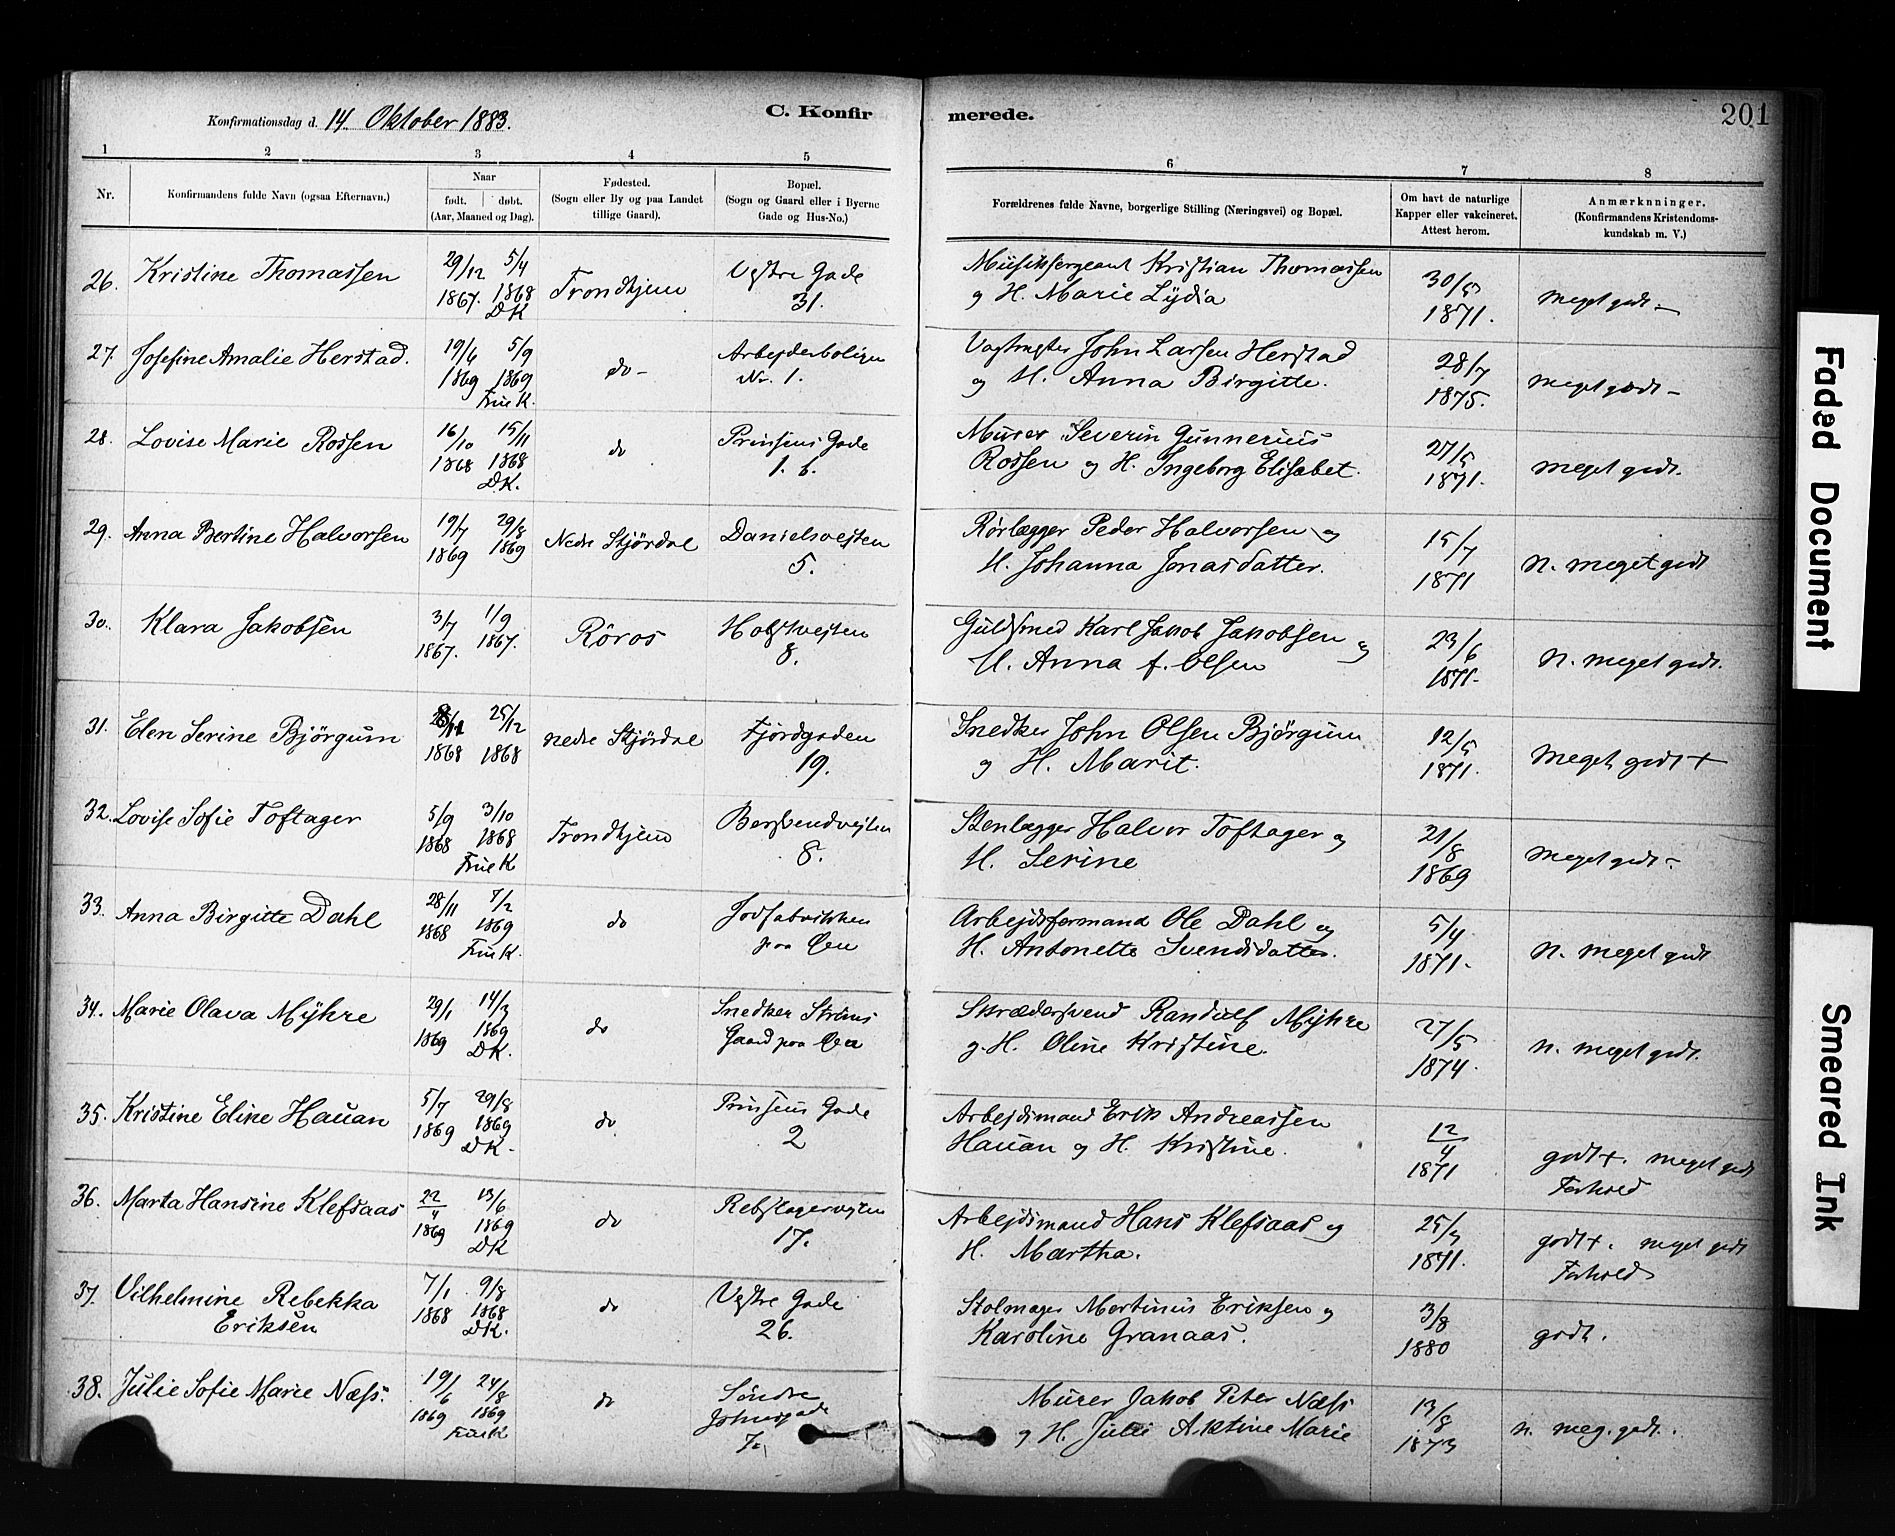 Konfirmationsdag d. 14. Oktober 1883.
C. Konfirmerede.
201
1 2 3 4 5 6 7 8
Nr.
Konfirmandens fulde Navn (ogsaa Efternavn.)
Naar
født. døbt.
(Aar, Maaned og Dag).
Fødested.
(Sogn eller By og paa Landet
tillige Gaard).
Bopæl.
(Sogn og Gaard eller i Byerne
Gade og Hus-No.)
Forældrenes fulde Navne, borgerlige Stilling (Næringsvei) og Bopæl.
Om havt de naturlige
Kapper eller vakcineret.
Attest herom.
Anmærkninger.
(Konfirmandens Kristendoms-
kundskab m. V.)
26. Kristine Thomassen 29/12 1867. 5/4 1868 DK Trondhjem Vestre Gade 31. Musiksergeant Kristian Thomassen
og H. Marie Lydia 30/5 1871. meget godt -
27. Josefine Amalie Herstad. 19/6 1869 5/9 1869 Frue K. do - Arbejderboligen No. 1. Vogtmester John Larsen Herstad
og H. Anna Birgitte. 28/7 1875. meget godt -
28. Lovise Marie Rossen 16/10 1868 15/11 1868 DK. do Prinsens Gade 1. b. Murer Severin Gunnerius
Rossen og H. Ingeborg Elisabet. 27/5 1871. meget godt.
29. Anna Bertine Halvorsen 19/7 1869 29/8 1869 Nedre Stjördal Danielsvejten 5. Rørlægger Peder Halvorsen og
H. Johanna Jonasdatter. 15/7 1871 n. meget godt
30. Klara Jakobsen 3/7 1867. 1/9 1867. Röros Holstvejten 8. Guldsmed Karl Jakob Jakobsen og
H. Anna f. Olsen 23/6 1871. n. meget godt.
31. Elen Serine Björgum 1868 25/12 1868 nedre Stjördal Fjordgaden 19. Snedker John Olsen Björgum
og H. Marit. 12/5 1871. meget godt +
32. Lovise Sofie Toftager 5/9 1868 3/10 1868 Frue K Trondhjem Bersvendvejten 8. Stenlægger Halvor Toftager og
H. Serine 21/8 1869 meget godt -
33. Anna Birgitte Dahl 28/11 1868 7/2 1869 Frue K. do Jodfabrikken paa Øen Arbejdsformand Ole Dahl og
H. Antonette Svendsdatter. 5/4 1871. n. meget godt
34. Marie Olava Myhre 29/1 1869 14/3 1869 DK. do Snedker Ströms Gaard paa Øen Skrædersvend Randulf Myhre
og H. Oline Kristine. 27/5 1874. n. meget godt.
35. Kristine Eline Hauan 5/7 1869 29/8 1869 DK. do Prinsens Gade 2 Arbejdsmand Erik Andreassen
Hauan og H. Kristine. 12/4 1871 godt +. meget godt
Forhold
36. Marta Hansine Klefsaas 22/4 1869 13/6 1869 DK do Rebslagervejten 17. Arbejdsmand Hans Klefsaas og
H. Martha. 25/3 1871. godt +. meget godt
Forhold
37. Vilhelmine Rebekka
Eriksen 7/1 1868 9/8 1868 DK. do Vestre Gade 26. Stolmager Martinus Eriksen og
Karoline Granaas. 3/8 1880 godt.
38. Julie Sofie Marie Næss. 19/6 1869 24/8 1869 Frue K do Söndre 7. Murer Jakob Peter Næss
og H. Julie Marie 13/8 1873 n. meg. godt.
Faded Document
Smeared Ink